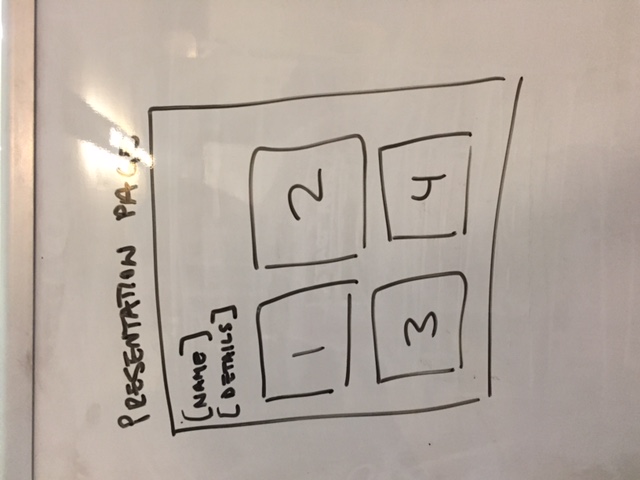 PRESENTATION PAGES
[NAME]
[DETAILS]
1
2
3
4